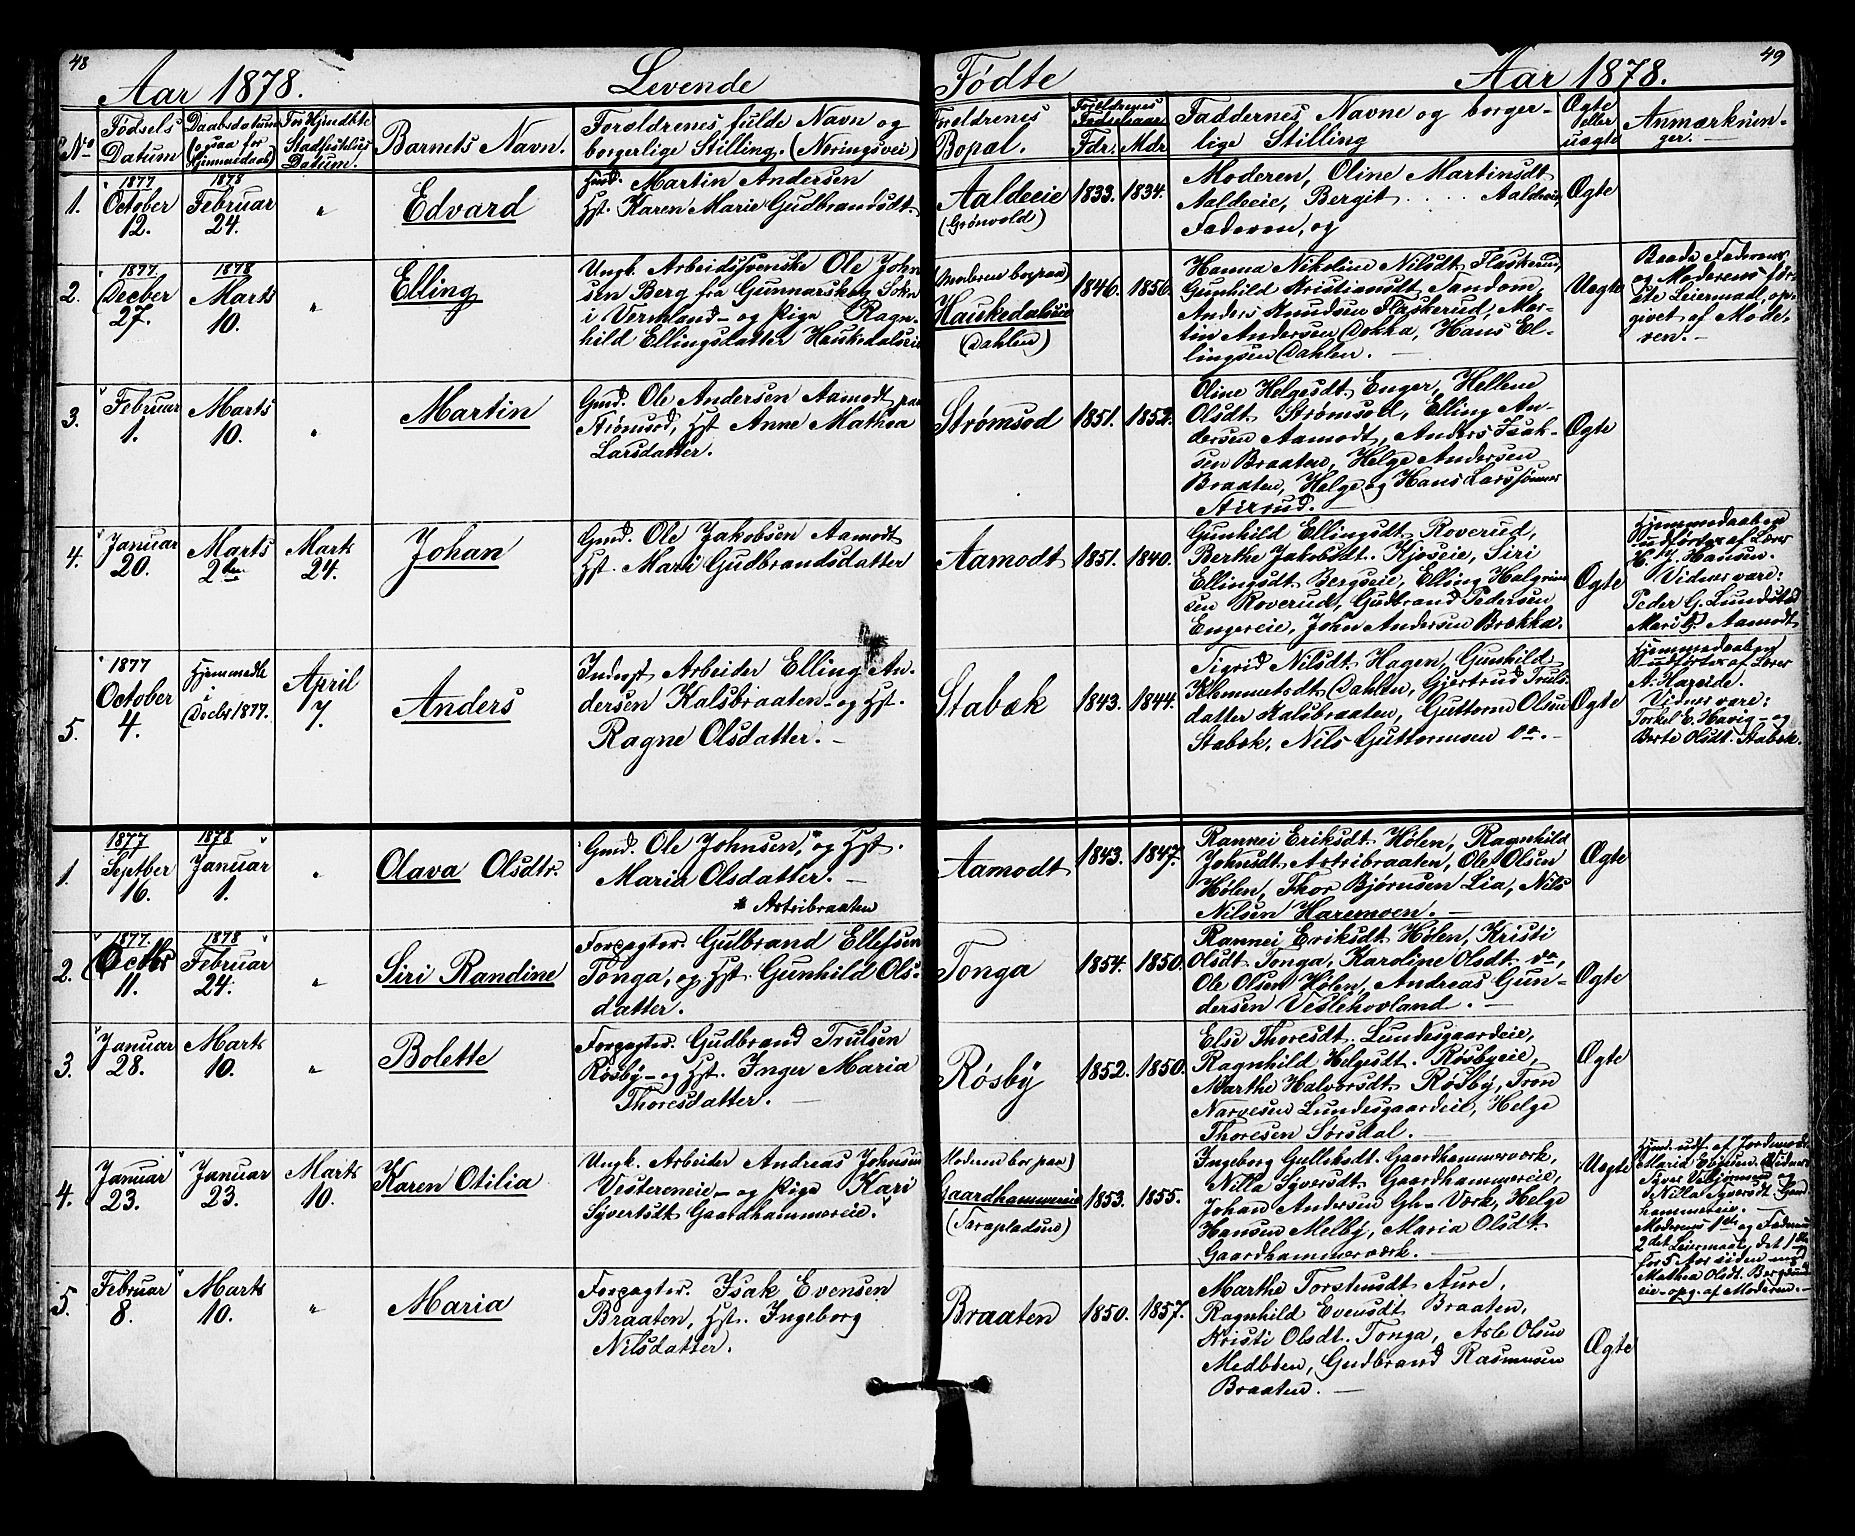 48
Aar 1878.
Levende
No
Fødsels Datum
Daabsdatum (ogsaa for Hjemmedaab)
Stadfæstelses Datum.
Barnets Navn.
Forældrenes fulde Navn og
borgerlige Stilling. (Næringsvei)
1.
1877
October
12.
1878
Februar
24.
"
Edvard
Martin Andersen
Hst. Karen Marie Gudbrandsdt.
2.
1877
Decber
27.
1878
Marts
10.
"
Elling
Ungk. Arbeidssvenske Ole John-
sen Berg fra Gunnarskog Sokn
i Vermland – og Pige Ragn-
hild Ellingsdatter Haukedalseie
3.
Februar
1.
Marts
10.
"
Martin
Gmd. Ole Andersen Aamodt paa
Strømsod, Hst Anne Mathea
Larsdatter.
4.
Januar
20.
Marts
2den
Marts
24.
Johan
Gmd. Ole Jakobsen Aamodt
Hst. Mari Gudbrandsdatter
5.
1877
October
4.
Hjemmedbt.
i
Decbr 1877.
April
7.
Anders
Inderst Arbeider Elling An-
dersen Kalsbraaten – og Hst.
Ragne Olsdatter. –
1.
1877
Septber
16.
1878
Januar
1.
"
Olava Olsdtr.
Gmd. Ole Johnsen,* og Hst.
Maria Olsdatter. –
* Astribraaten
2.
1877.
Octbr
11.
1878
Februar
24.
"
Siri Randine
Forpagter. Gulbrand Ellefsen
Tonga, og Hst Gunhild Ols-
datter.
3.
Januar
28.
Marts
10.
"
Bolette
Forpagter. Gudbrand Trulsen
Røsby – og Hst. Inger Maria
Thoresdatter. –
4.
Januar
23.
Januar
23.
Marts
10.
Karen Otilia
Ungk. Arbeider Andreas Johnsen
Vestereneie – og Pige Kari
Syvertsdt. Gaardhammereie.
5.
Februar
8.
Marts
10.
"
Maria
Forpagter. Isak Evensen
Braaten, Hst. Ingeborg
Nilsdatter.
49
Fødte
Aar 1878.
Forældrenes
Bopæl.
Forældrenes
Fødselsaar
Fdr. Mdr.
Faddernes Navne og borger-
lige Stilling
Ægte
eller
uægte
Anmærknin-
ger. –
Aaldeeie
(Grønvold)
1833. 1834.
Moderen, Oline Martinsdt
Aaldeeie, Bergit ..... Aaldeeie,
Faderen, og
Ægte
(Moderen bor paa)
Haukedalseie
(Dahlen)
1846. 1856.
Hanna Nikoline Nilsdt. Flaskerud,
Gunhild Kristiansdt. Sandom,
Anders Knudsen Flaskerud, Mar-
tin Andersen Dokka, Hans El-
lingsen Dahlen. –
Uægte
Baade Faderens
og Moderens før-
ste Leiermaal, op-
givet af Mode-
ren. –
Strømsod
1851. 1852.
Oline Helgesdt. Enger, Hellene
Olsdt. Strømsod, Elling An-
dersen Aamodt, Anders Isak-
sen Braaten, Helge Andersen
Braaten, Helge og Hans Larssønner
Ægte
Aamodt
1851. 1840.
Gunhild Ellingsdt. Roverud,
Berthe Jakobsdt. Kjøseie, Siri
Ellingsdt. Bergseie, Elling Halgrim-
sen Roverud, Gudbrand Pedersen
Engereie, John Andersen Brækka.
Ægte
Hjemmedaaben
udførtes af Lærer
H. J. Hansen.
Vidner vare:
Peder G. Lundstad
Mari G. Aamodt
Stabæk
1843. 1844.
Sigrid Nilsdt. Hagen, Gunhild
Klemmetsdt. Dahlen, Gjertrud Truls-
datter Kalsbraaten, Guttorm Olsen
Stabæk, Nils Guttormsen do. –
Ægte
Hjemmedaaben
udførtes af Lærer
A. Hareide.
Vidner vare:
Torkel E. Havig – og
Berte Olsdt. Stabæk.
Aamodt
1843. 1847.
Rannei Eriksdt. Hølen, Ragnhild
Johnsdt. Astribraaten, Ole Olsen
Hølen, Thor Bjørnsen Lia, Nils
Nilsen Haremoen. –
Ægte
Tonga
1854. 1850.
Rannei Eriksdt. Hølen, Kristi
Olsdt. Tonga, Karoline Olsdt. do,
Ole Olsen Hølen, Andreas Gun-
dersen Veslehovland. –
Ægte
Røsby
1852. 1850.
Else Thoresdt. Lundesgaardeie,
Ragnhild Helgesdt. Røsbyeie,
Marthe Halvorsdt. Røsby, Tron
Narvesen Lundesgaardeie, Helge
Thoresen Sørsdal. –
Ægte
Moderen bor paa)
Gaardhammereie
1853. 1855.
Ingeborg Gulleksdt. Gaardhammerværk,
Nilla Syversdt. Gaardhammereie,
Johan Andersen Gh-Værk, Helge
Hansen Melby, Maria Olsdt.
Gaardhammerværk. –
Uægte
Hjmd. udf. af Jordemoder
Nilla Syversdt. Gaard-
hammereie. –
Moderens 1ste og Faderens
2det Leiermaal, det 1ste
for 5 Aar siden med
Mathea Olsdt. Bergsund-
eie – opg. af Moderen. –
Braaten
1850. 1857.
Marthe Torstensdt. Aure,
Ragnhild Evensdt. Braaten,
Kristi Olsdt. Tonga, Asle Olsen
Medbøen, Gudbrand Rasmusen
Braaten. –
Ægte